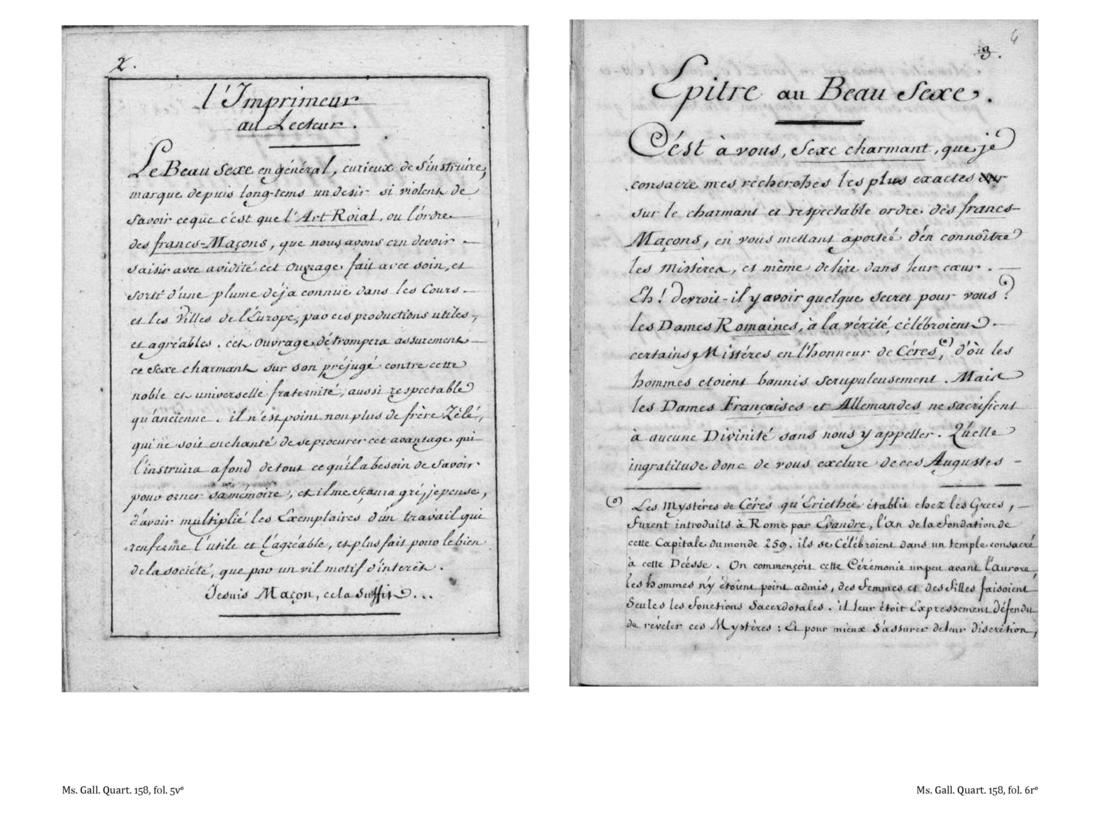 2.
l'Imprimeur
au Lecteur.
Le Beau sexe en général, curieux de s'instruire,
marque depuis long-tems un desir si violent de
savoir ce que c'est que l'Art Roial, ou l'ordre
des francs-Maçons, que nous avons cru devoir
saisir avec avidité cet Ouvrage fait avec soin, et
sorti d'une plume déja connüe dans les Cours
et les Villes de l'Europe, par ces productions utiles,
et agréables. cet Ouvrage détrompera assurement
ce sexe charmant sur son préjugé contre cette
noble et universelle fraternité, aussi respectable
qu'ancienne. il n'est point non plus de frère Zèlé,
qui ne soit enchanté de se procurer cet avantage qui
l'instruira a fond de tout ce qu'il a besoin de savoir
pour orner sa mémoire, et il me sçaura gré, je pense,
d'avoir multiplié les Exemplaires d'un travail qui
renferme l'utile et l'agréable, et plus fait pour le bien
de la societé, que par un vil motif d'interêt.
Je suis Maçon, cela suffit...
6
3.
Epitre au Beau Sexe.
C'ést à vous, Sexe charmant, que je
consacre mes recherches les plus exactes
sur le charmant et respectable ordre des francs-
Maçons, en vous mettant aportée d'en connoître
les mistères, et même de lire dans leur cœur.
Eh! devroit-il y avoir quelque Secret pour vous?
les Dames Romaines, à la vérité, célébroient
certains Mistéres en l'honneur de Céres, (a) d'où les
hommes etoient bannis scrupuleusement. Mais
les Dames Françaises et Allemandes ne sacrifient
à aucune Divinité sans nous y appeller. Quelle
ingratitude donc de vous exclure de ces Augustes
(a) Les Mystères de Cérès qu'Ericthée établit chez les Grecs,
furent introduits à Rome par Evandre, l'an de la fondation de
cette Capitale du monde 259. ils se Célébroient dans un temple consacré
à cette Déesse. On commençoit cette Cérémonie un peu avant l'aurore,
les hommes n'y étoient point admis, des femmes et des filles faisoient
Seules les fonctions Sacerdotales. il leur étoit Expressement défendu
de réveler ces Mystères: Et pour mieux s'assurer de leur discrétion,
Ms. Gall. Quart. 158, fol. 5vº
Ms. Gall. Quart. 158, fol. 6rº